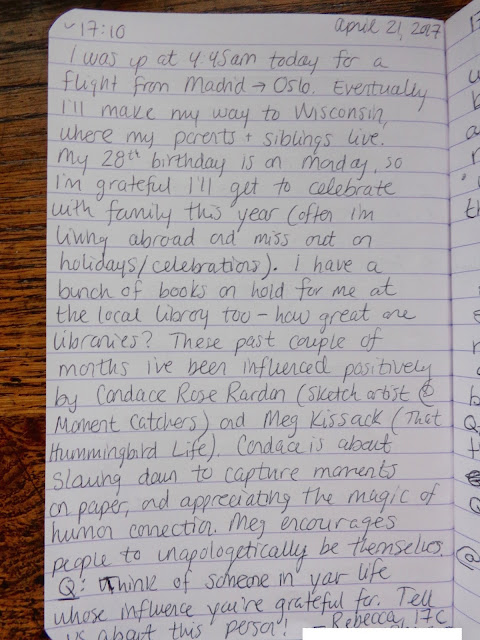 ~17:10 April 21, 2017
I was up at 4:45am today for a
flight from Madrid → Oslo. Eventually
I'll make my way to Wisconsin,
where my parents + siblings live.
My 28th birthday is on Monday, so
I'm grateful I'll get to celebrate
with family this year (often I'm
living abroad and miss out on
holidays/celebrations). I have a
bunch of books on hold for me at
the local library too - how great are
libraries? These past couple of
months I've been influenced positively
by Candace Rose Rardon (sketch artist @
Moment Catchers) and Meg Kissack (That
Hummingbird Life). Candace is about
slowing down to capture moments
on paper, and appreciating the magic of
human connection. Meg encourages
people to unapologetically be themselves.
Q: Think of someone in your life
whose influence you're grateful for. Tell
us about this person! - Rebecca, 17C